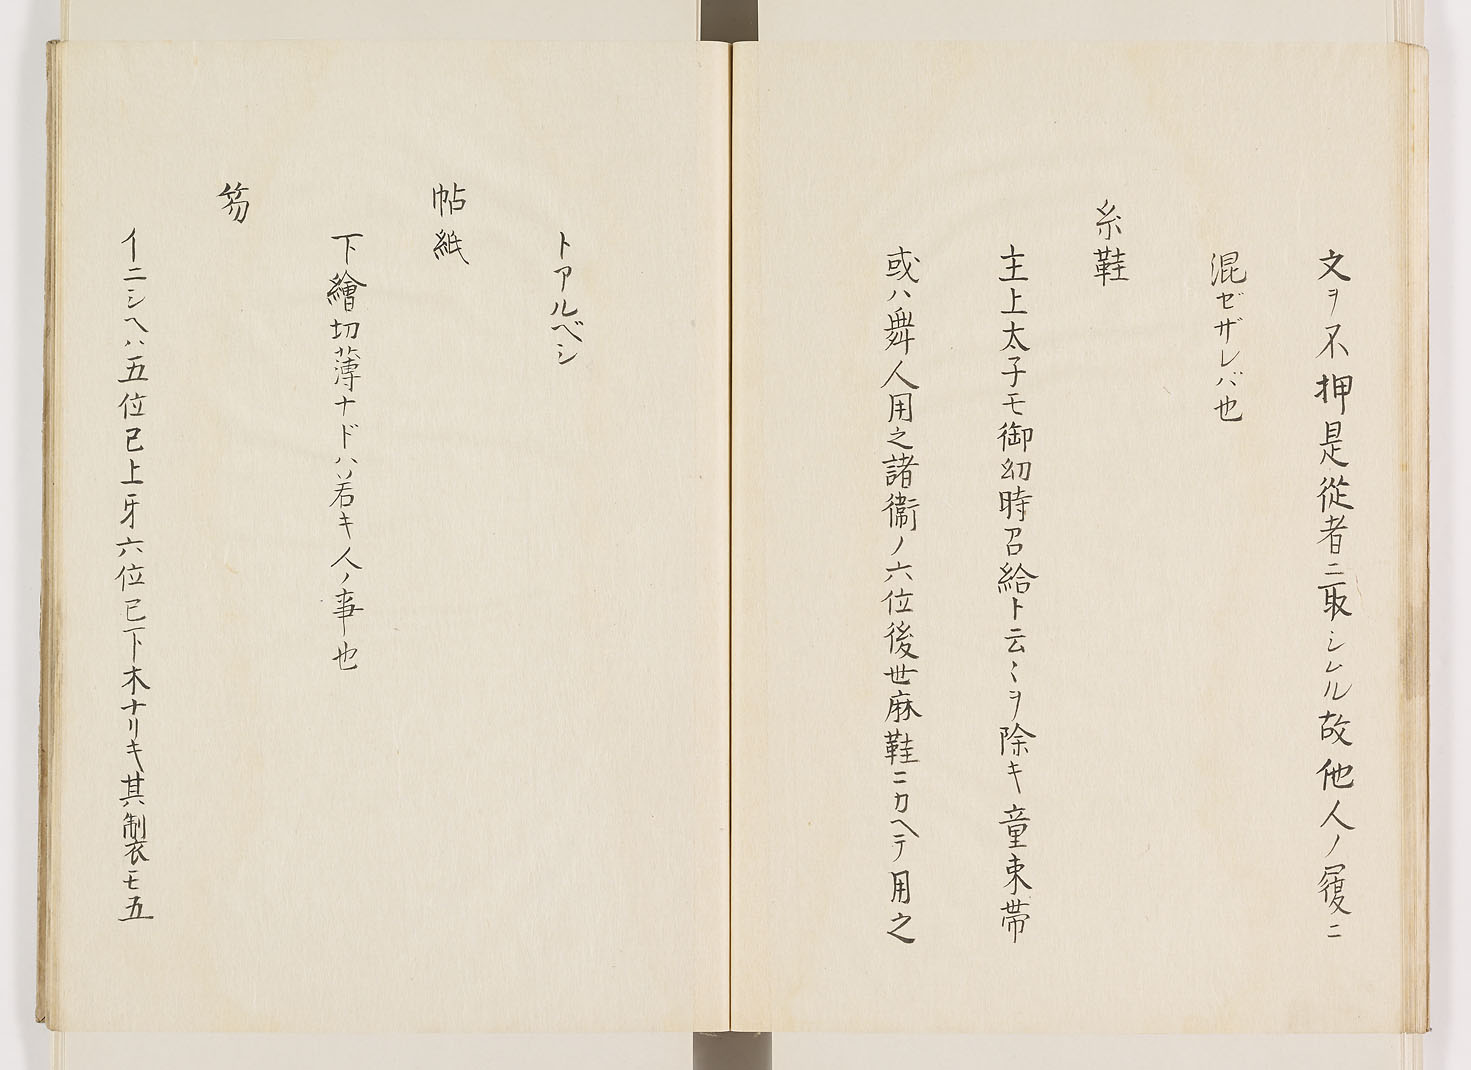 文ヲ不押是従者ニ取シムル故他人ノ履ニ
混ゼザレバ也
糸鞋
主上太子モ御幼時召給ト云〻ヲ除キ童束帯
或ハ舞人用之諸衛ノ六位後世麻鞋ニカヘテ用之
トアルベシ
帖紙
下繪切薄ナドハ若キ人ノ事也
笏
イニシヘハ五位已上牙六位已下木ナリキ其製モ五